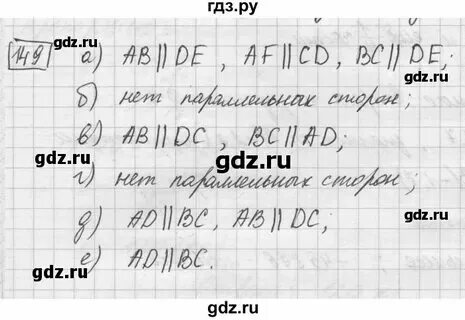 гдз.ру
149 а) AB||DE, AF||CD, BC||DE;
б) нет параллельных сторон;
в) AB||DC, BC||AD;
г) нет параллельных сторон;
д) AD||BC, AB||DC;
е) AD||BC.
gdz.ru
gdz.ru
gdz.ru
gdz.ru
gdz.ru
gdz.ru
gdz.ru
gdz.ru
gdz.ru